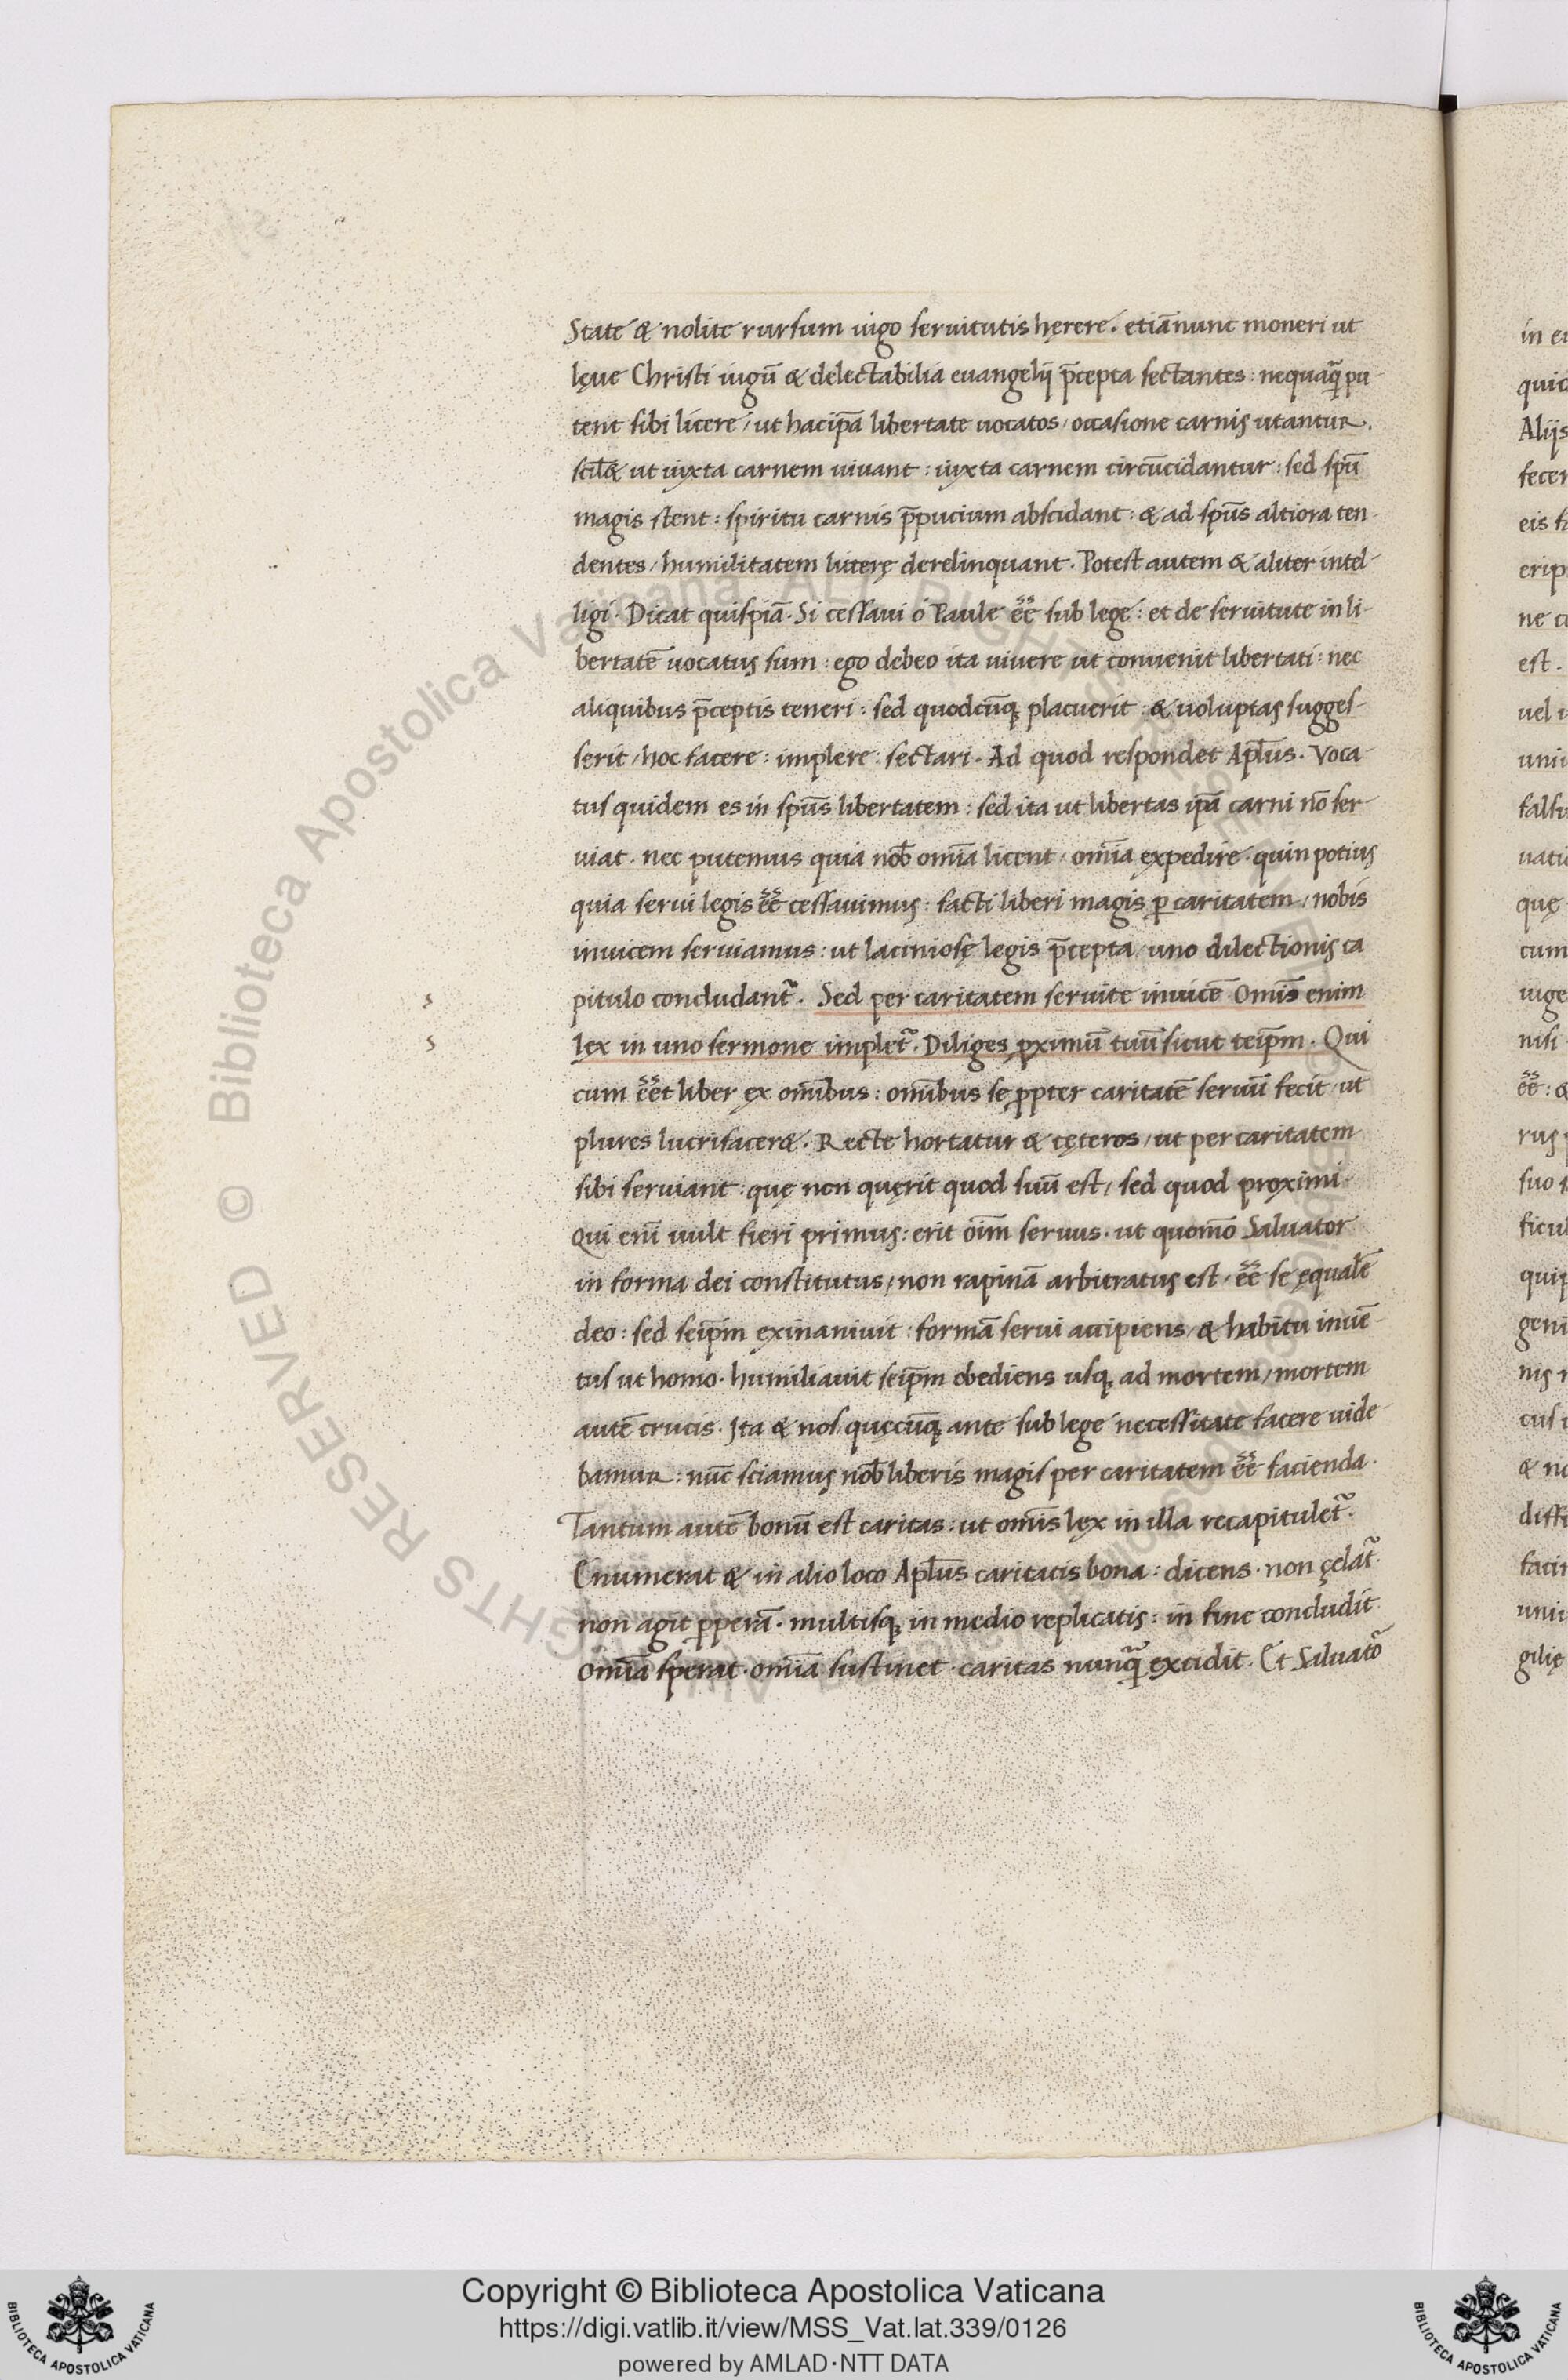 State & nolite rursum iugo seruitutis hęrere. etiā nunc moneri ut
lęue Christi iugū & delectabilia euangelij p̄cepta sectantes: nequaq̄ pu-
tent sibi licere / ut hac ip̄a libertate uocatos / occasione carnis utantur.
scil& ut iuxta carnem uiuant: iuxta carnem circūcidantur: sed sp̄u
magis stent: spiritu carnis p̄pucium abscidant: & ad sp̄us altiora ten-
dentes / humilitatem litterę derelinquant. Potest autem & aliter intel-
ligi. Dicat quispiā. Si cessaui ó Paule ēē sub lege: et de seruitute in li-
bertatē uocatus sum: ego debeo ita uiuere ut conuenit libertati: nec
aliquibus p̄ceptis teneri: sed quodcūq; placuerit: & uoluptas sugges-
serit / hoc facere: implere: sectari. Ad quod respondet Apl̄us. Voca-
tus quidem es in sp̄us libertatem: sed ita ut libertas ip̄a carni nō ser-
uiat. nec putemus quia nob̄ om̄ia licent / om̄ia expedire. quin potius
quia serui legis ēē cessauimus: facti liberi magis ꝑ caritatem / nobis
inuicem seruiamus: ut laciniosę legis p̄cepta / uno dilectionis ca
pitulo concludant᷑. Sed per caritatem seruite inuicē. Om̄is enim
lex in uno sermone implet᷑. Diliges ꝓximū tuū sicut teip̄m. Qui
cum ēēt liber ex om̄ibus: om̄ibus se ꝓpter caritatē seruū fecit / ut
plures lucrifacer&. Recte hortatur & cęteros / ut per caritatem
sibi seruiant: quę non quęrit quod suū est / sed quod proximi.
Qui enī uult fieri primus: erit oīm seruus. ut quomō Saluator
in forma dei constitutus / non rapinā arbitratus est / ēē se ęqualē
deo: sed seip̄m exinaniuit: formā serui accipiens / & habitu inuē-
tus ut homo. humiliauit seip̄m obediens usq; ad mortem / mortem
autē crucis. Ita & nos quęcūq; ante sub lege necessitate facere uide-
bamur: nūc sciamus nob̄ liberis magis per caritatem ēē facienda.
Tantum autē bonū est caritas: ut om̄is lex in illa recapitulet᷑.
Enumerat & in alio loco Apl̄us caritatis bona: dicens. non çelat᷑.
non agit ꝑperā. multisq; in medio replicatis: in fine concludit.
Om̄ia sperat. om̄ia sustinet. caritas nunq̄ excidit. Et Saluato᷑
Copyright © Biblioteca Apostolica Vaticana
https://digi.vatlib.it/view/MSS_Vat.lat.339/0126
powered by AMLAD·NTT DATA